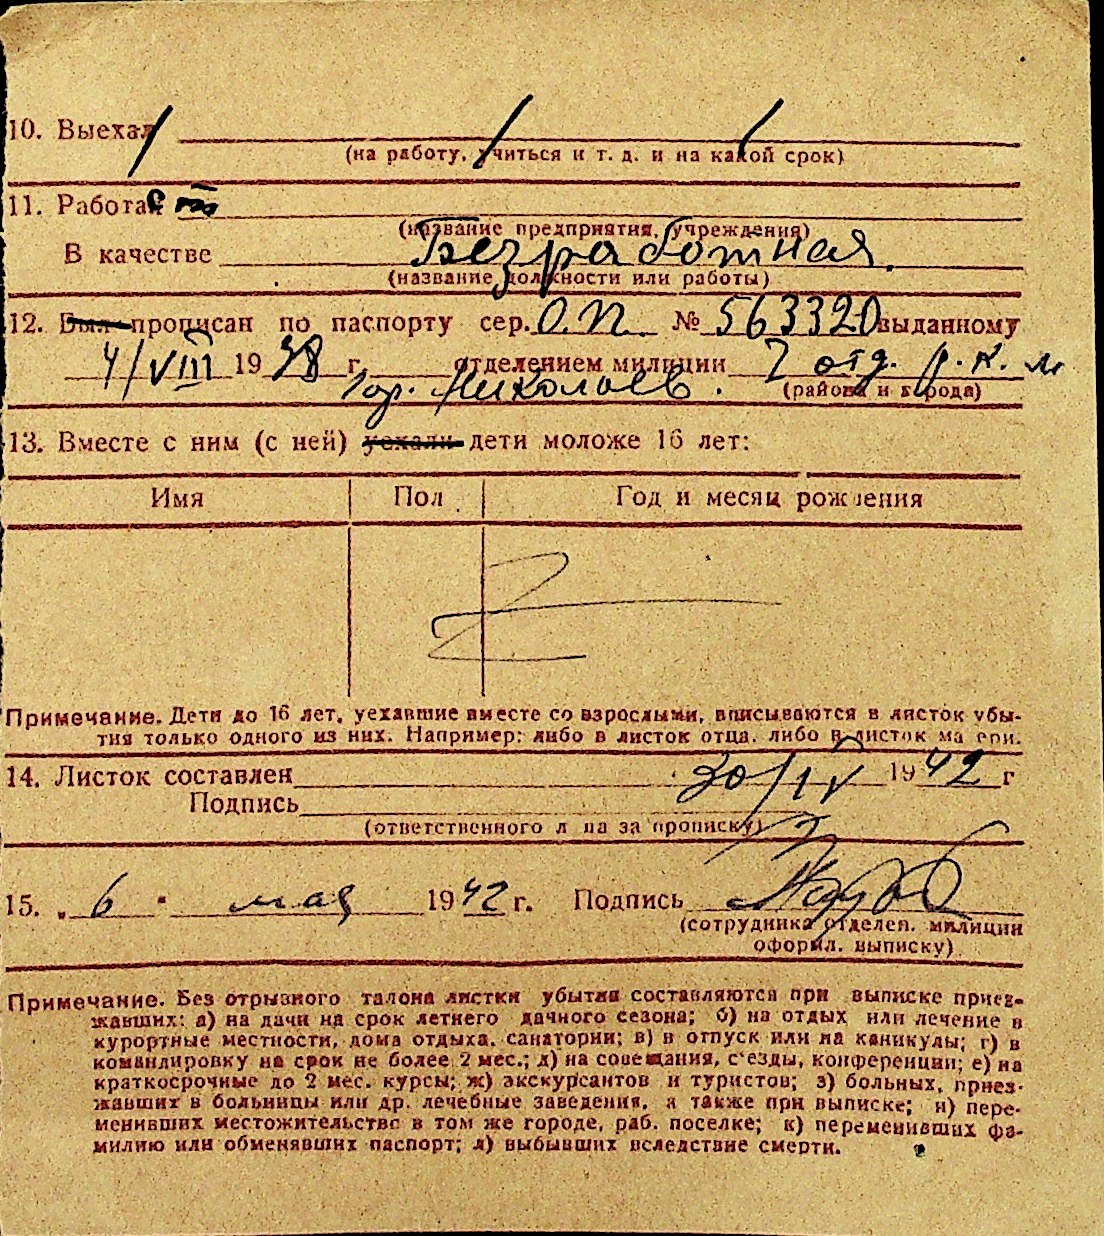 10. Выехал
(на работу, учиться и т. д. и на какой срок)
11. Работае
(название предприятия, учреждения)
В качестве Безработная.
(название должности или работы)
12. Был прописан по паспорту сер. О.П. № 563320 выданному
4/VIII 1938 г. отделением милиции 7 отд. р. к. м
гор. Николаев. (района и города)
13. Вместе с ним (с ней) уехали дети моложе 16 лет:
Имя Пол Год и месяц рождения
Примечание. Дети до 16 лет, уехавшие вместе со взрослыми, вписываются в листок убы-
тия только одного из них. Например: либо в листок отца, либо в листок ма ери.
14. Листок составлен 30/IV 1942 г
Подпись
(ответственного л ца за прописку)
15. „ 6 " мая 1942 г. Подпись
(сотрудника отделен. милиции
оформл. выписку)
Примечание. Без отрывного талона листки убытия составляются при выписке приез-
жавших: а) на дачи на срок летнего дачного сезона; б) на отдых или лечение в
курортные местности, дома отдыха, санатории; в) в отпуск или на каникулы; г) в
командировку на срок не более 2 мес.; д) на совещания, с'езды, конференции; е) на
краткосрочные до 2 мес. курсы; ж) экскурсантов и туристов; з) больных, приез-
жавших в больницы или др. лечебные заведения, а также при выписке; и) пере-
менивших местожительство в том же городе, раб. поселке; к) переменивших фа-
милию или обменявших паспорт; л) выбывших вследствие смерти.